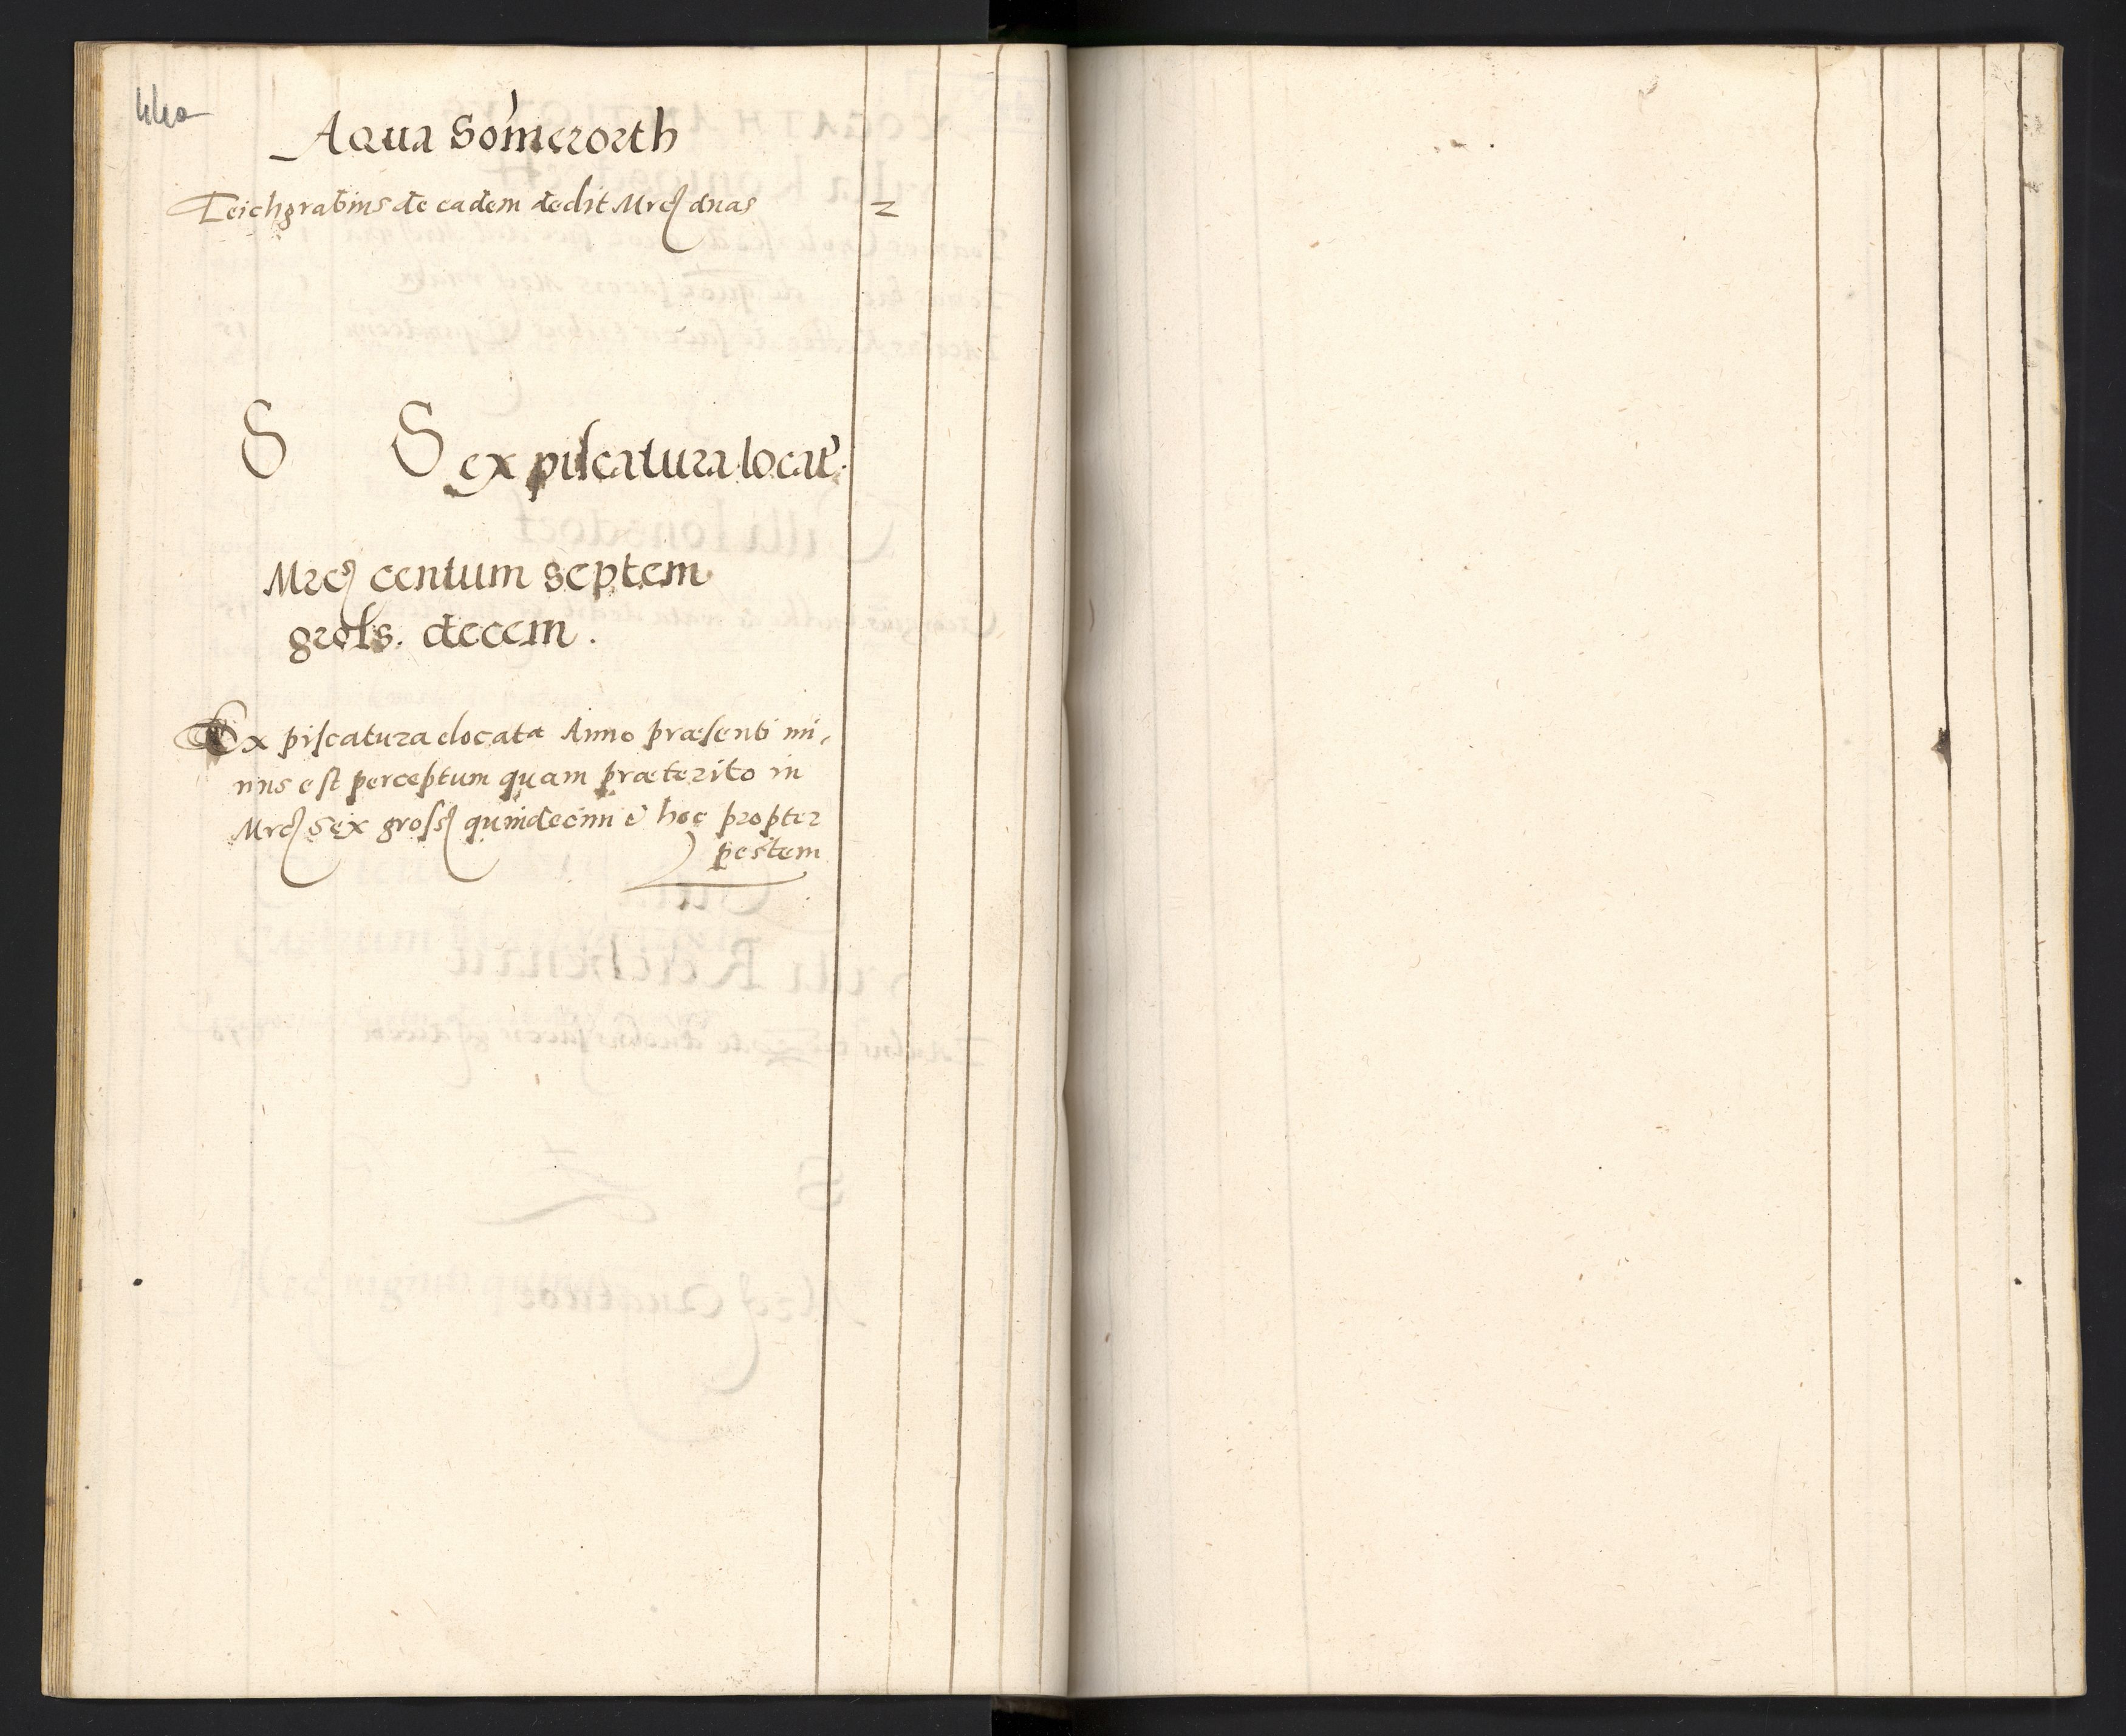 Aqua Somerorth
Teichgrabius de eadem dedit Mrcȝ duas 2
S S ex piscatura locat
Mrcȝ centum septem
gross. decem.
Ex piscatura elocata Anno præsenti mi,
nus est perceptum quam præterito in
Mrcȝ sex grossȝ quindecim e hoc propter
pestem